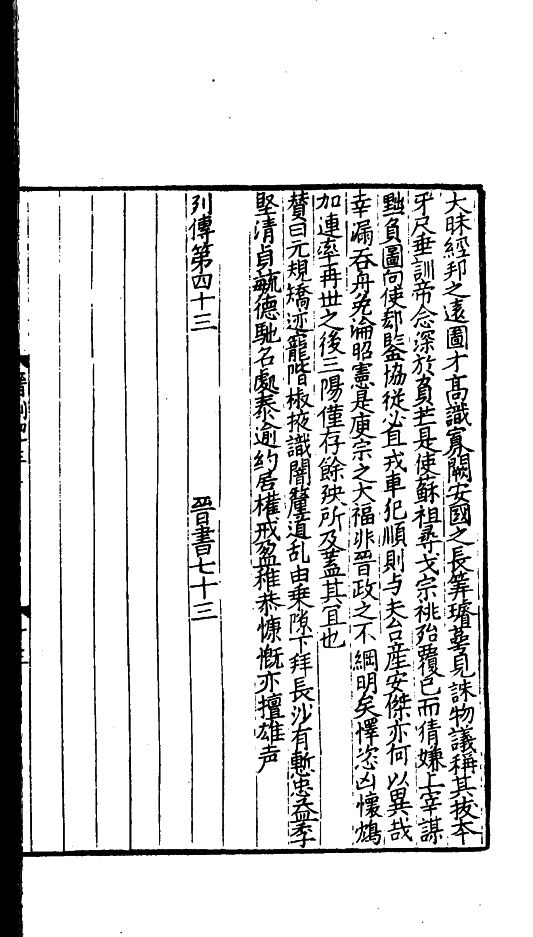 大昧經邦之遠圖才高識寡闕安國之長筭璿萼見誅物議稱其拔本
牙尺垂訓帝念深於負芒是使蘇祖尋戈宗祧殆覆已而猜嫌上宰謀
黜負圖向使郄鑒協從必且戎車犯順則与夫台産安傑亦何以異哉
幸漏吞舟免淪昭憲是庾宗之大福非晉政之不綱明矣懌恣凶懷鴆
加連率再世之後三陽僅存餘殃所及蓋其宜也
賛曰元規矯迹寵階椒掖識闇釐道乱由乗隙下拜長沙有慙忠益季
堅清貞毓德馳名處泰逾約居權戒盈稚恭慷慨亦擅雄声
列傳第四十三　晉書七十三